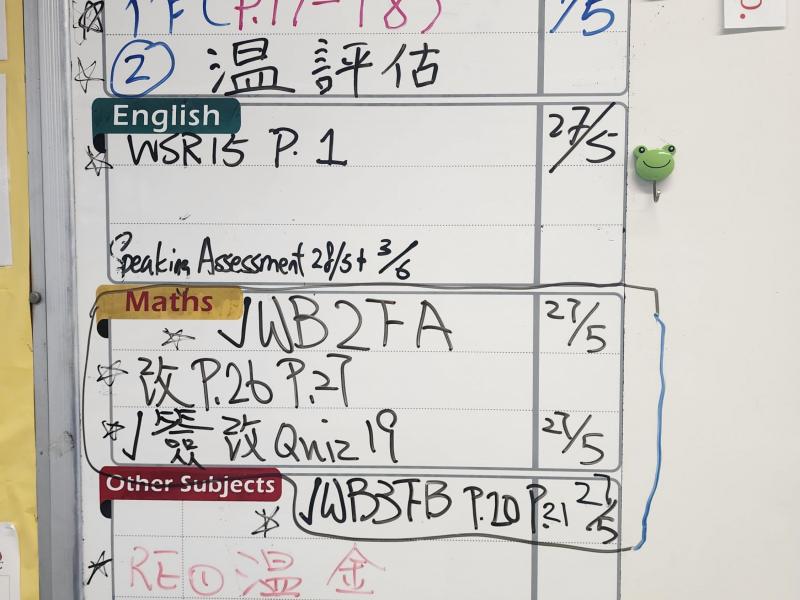 (P.17-18) 1/5
② 溫 評估
English
WSR15 P. 1 27/5
Speaking Assessment 28/5 + 3/6
Maths
✓WB2FA 27/5
改 P.26 P.27
✓簽 改 Quiz 19 27/5
Other Subjects
✓WB3FB P.20 P.21 27/5
RE ① 溫 金